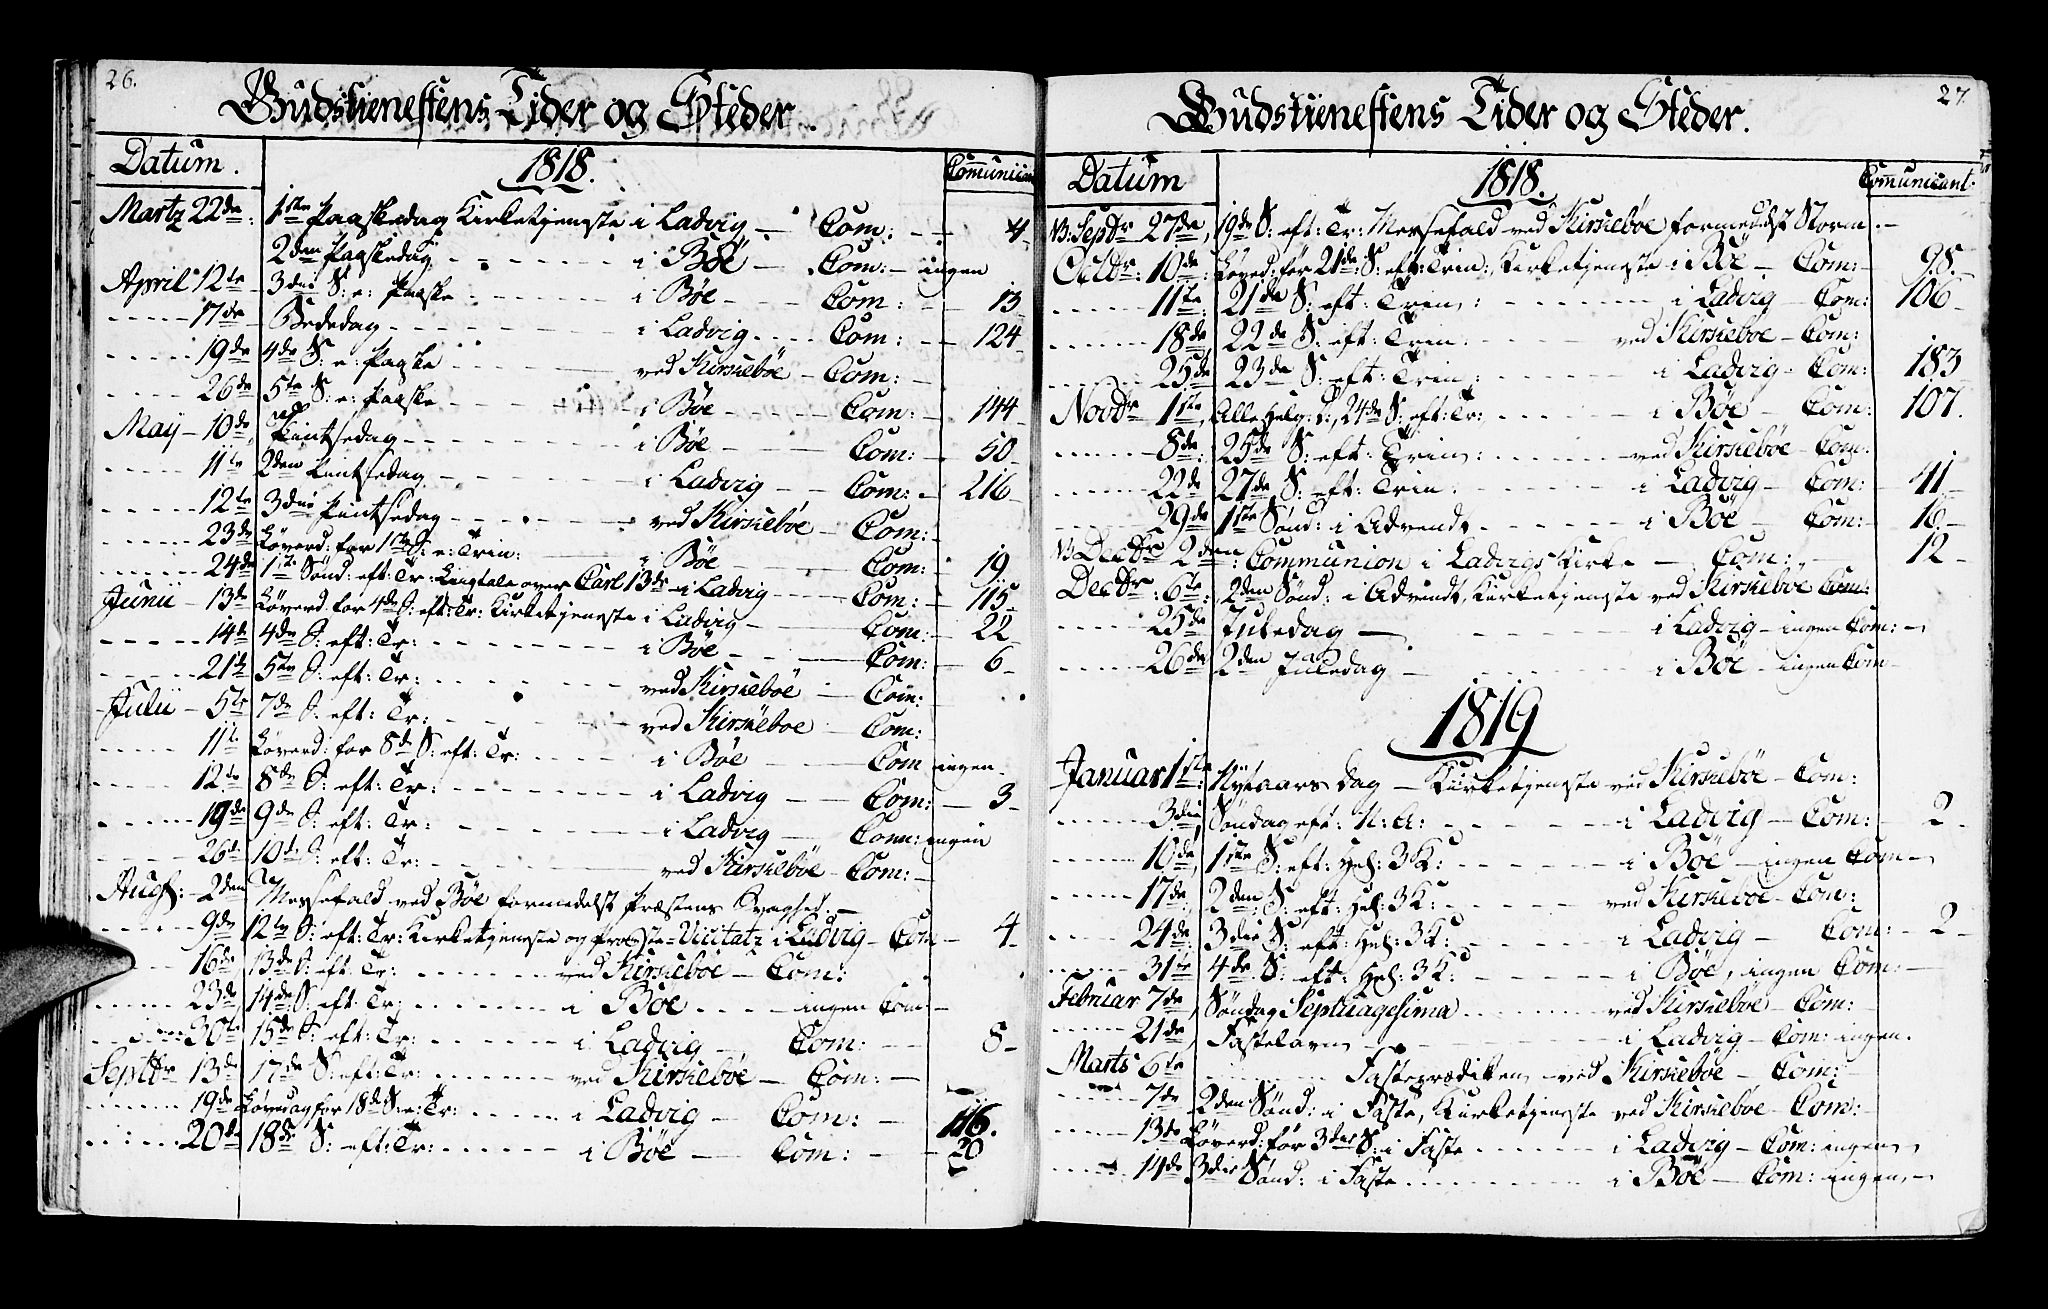 26.
Gudstienestens Tider og Steder.
Datum. 1818. Communicant:
Martz 22de: 1ste Paaskedag Kirketjeneste i Ladvig — Com: — 4
2den Paaskedag - - - i Böe — Com: — ingen
April 12te 3die S: e: Paaske - - - i Böe - - Com: — 13
- - - 17de Bededag - - - i Ladvig - - Com: — 124
- - - 19de 4de S: e: Paaske - - - ved Kirkebøe — Com: —
- - - 26de 5te S: e: Paaske - - - i Bøe - - Com: — 144
May — 10de Pintsedag - - - i Bøe - - Com: — 50
- - - 11te 2den Pintsedag - - - i Ladvig — Com: — 216
- - - 12te 3die Pintsedag - - - ved Kirkebøe — Com: —
- - - 23de Løverd: før 1ste S: e: Trin: — i Bøe — Com: — 19
- - - 24de 1ste Sönd: eft: Tr: Liigtale over Carl 13de — i Ladvig — Com: — 115
Junii — 13de Løverd: før 4de S: eft: Tr: Kirketjeneste i Ladvig — Com: — 22
- - - 14de 4de S: eft: Tr: - - - i Bøe - - Com: — 6
- - - 21de 5te S: eft: Tr: - - - ved Kirkebøe — Com: —
Julii — 5te 7de S: eft: Tr: - - - ved Kirkebøe — Com:
- - - 11te Løverd: for 8de S: eft: Tr: - - - i Bøe — Com ingen
- - - 12te 8de S: eft: Tr: - - - i Ladvig — Com: — 3
- - - 19de 9de S: eft: Tr: - - - i Ladvig — Com: ingen
- - - 26de 10de S: eft: Tr: - - - ved Kirkebøe — Com: —
Augst: — 2den Messefald ved Bøe formedelst Præstens Svaghed —
- - - 9de 12te S: eft: Tr: Kirketjeneste og Præste-Visitatz i Ladvig — Com — 4
- - - 16de 13de S: eft: Tr: - - - ved Kirkebøe — Com:
- - - 23de 14de S: eft: Tr: - - - i Bøe - - - ingen Com —
- - - 30te 15de S: eft: Tr: - - - i Ladvig — Com: — 8
Septbr 13de 17de S: eft: Tr: - - - ved Kirkebøe — Com: —
- - - 19de Løverdag før 18de S: e: Tr: - - - i Ladvig — Com: — 116.
- - - 20de 18de S: eft: Tr: - - - i Bøe — Com: — 20
27.
Gudstienestens Tider og Steder.
Datum 1818. Communicant:
NB: Septbr 27de, 19de S: eft: Tr: Messefald ved Kirkebøe formedelst Storm. —
Octbr: 10de Løverd: før 21de: S: eft: Trin: Kirketjeneste i Bøe — Com: — 98.
- - - 11te 21de S: eft: Trin: - - - i Ladvig — Com: 106
- - - 18de 22de S: eft: Trin: - - - ved Kirkebøe — Com:
- - - 25de 23de S: eft: Trin: - - - i Ladvig — Com: 183
Novbr 1ste Alle Helg: D:, 24de S: eft: Tr: - - - i Bøe — Com: 107.
- - - 8de 25de S: eft: Trin: - - - ved Kirkebøe — Com:
- - - 22de 27de S: eft: Trin: - - - i Ladvig — Com: — 41
- - - 29de 1ste Sönd: i Advendt - - - i Bøe — Com: — 16 —
NB Decbr 2den: Communion i Ladvigs Kirke — Com: — 12
Decbr: 6te 2den Sönd: i Advendt, Kirketjeneste ved Kirkebøe Com:
- - - 25de Juledag — - - - i Ladvig — ingen Com: —
- - - 26de 2den Juledag — - - - i Bøe — ingen Com —
1819
Januar 1ste: Nytaars Dag — Kirketjeneste ved Kirkebøe — Com:
- - - 3die Søndag eft: N: A: - - - i Ladvig — Com: — 2
- - - 10de 1ste S: eft: Hel: 3K: - - - i Bøe — ingen Com —
- - - 17de 2den S: eft: Hel: 3K: - - - ved Kirkebøe — Com:
- - - 24de 3die S: eft: Hel: 3K: - - - i Ladvig — Com: — 2
- - - 31te 4de S: eft: Hel: 3K: - - - i Bøe, ingen Com: —
Februar 7de Søndag Septuagesima - - - ved Kirkebøe — Com: —
- - - 21de Fastelavn — - - - i Ladvig — Com: ingen.
Marts 6te - - - Fasteprædiken — ved Kirkebøe — Com:
- - - 7de 2den Sönd: i Faste, Kirketjeneste ved Kirkebøe — Com: —
- - - 13de Løverd: før 3die S: i Faste - - - i Ladvig — Com: ingen —
- - - 14de 3die Sönd: i Faste - - - i Bøe — Com: ingen —